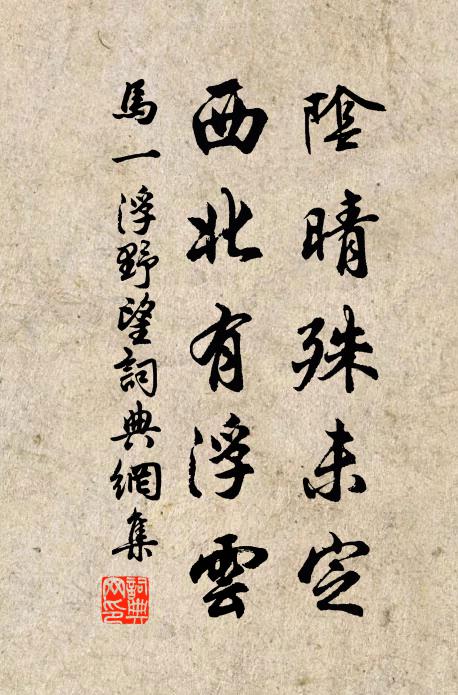 陰晴殊未定
西北有浮雲
馬一浮野望詞典網集
詞典網印